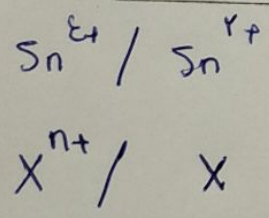 Sn^{4+} / Sn^{2+}
X^{n+} / X